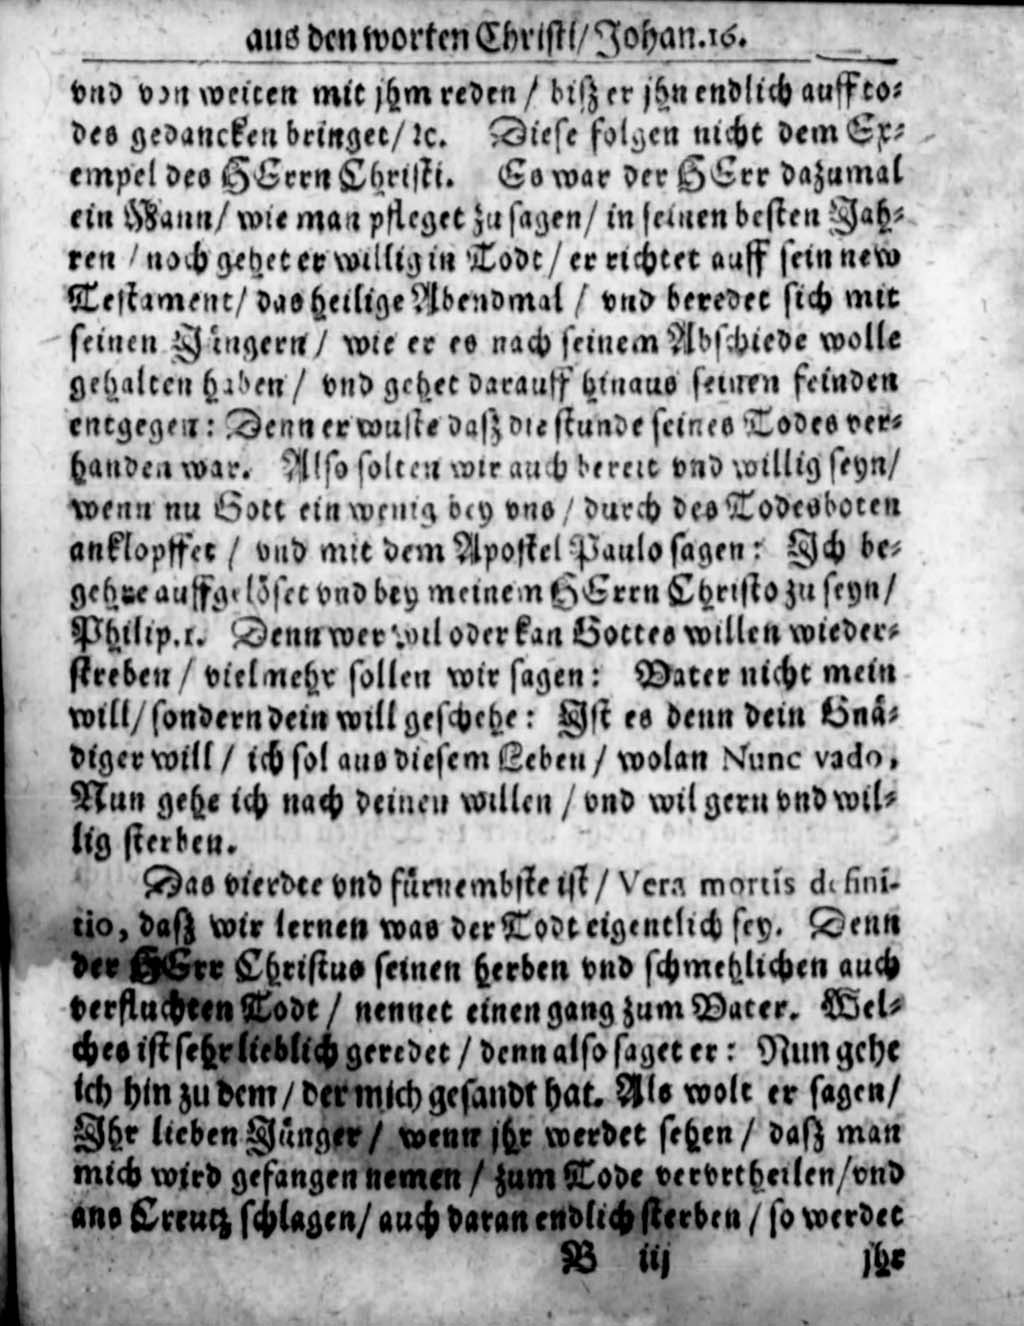 aus den worten Christi/ Johan. 16.
vnd von weiten mit jhm reden / biß er jhn endlich auff to-
des gedancken bringet/ ꝛc. Diese folgen nicht dem Ex-
empel des HErrn Christi. Es war der HErr dazumal
ein Mann/ wie man pfleget zu sagen/ in seinen besten Jah-
ren / noch gehet er willig in Todt/ er richtet auff sein new
Testament/ das heilige Abendmal / vnd beredet sich mit
seinen Jüngern/ wie er es nach seinem Abschiede wolle
gehalten haben/ vnd gehet darauff hinaus seinen feinden
entgegen: Denn er wuste daß die stunde seines Todes ver-
handen war. Also solten wir auch bereit vnd willig seyn/
wenn nu Gott ein wenig bey vns / durch des Todesboten
anklopffet / vnd mit dem Apostel Paulo sagen: Ich be-
gehre auffgelöset vnd bey meinem HErrn Christo zu seyn/
Philip. 1. Denn wer wil oder kan Gottes willen wieder-
streben / vielmehr sollen wir sagen: Vater nicht mein
will/ sondern dein will geschehe: Ist es denn dein Gnå-
diger will / ich sol aus diesem Leben/ wolan Nunc vado,
Nun gehe ich nach deinen willen / vnd wil gern vnd wil-
lig sterben.
Das vierdte vnd fürnembste ist/ Vera mortis defini-
tio, daß wir lernen was der Todt eigentlich sey. Denn
der HErr Christus seinen herben vnd schmehlichen auch
verfluchten Todt / nennet einen gang zum Vater. Wel-
ches ist sehr lieblich geredet / denn also saget er: Nun gehe
ich hin zu dem / der mich gesandt hat. Als wolt er sagen/
Ihr lieben Jünger / wenn jhr werdet sehen / daß man
mich wird gefangen nemen / zum Tode verurtheilen/ vnd
ans Creutz schlagen/ auch daran endlich sterben / so werdet
B iij jhr